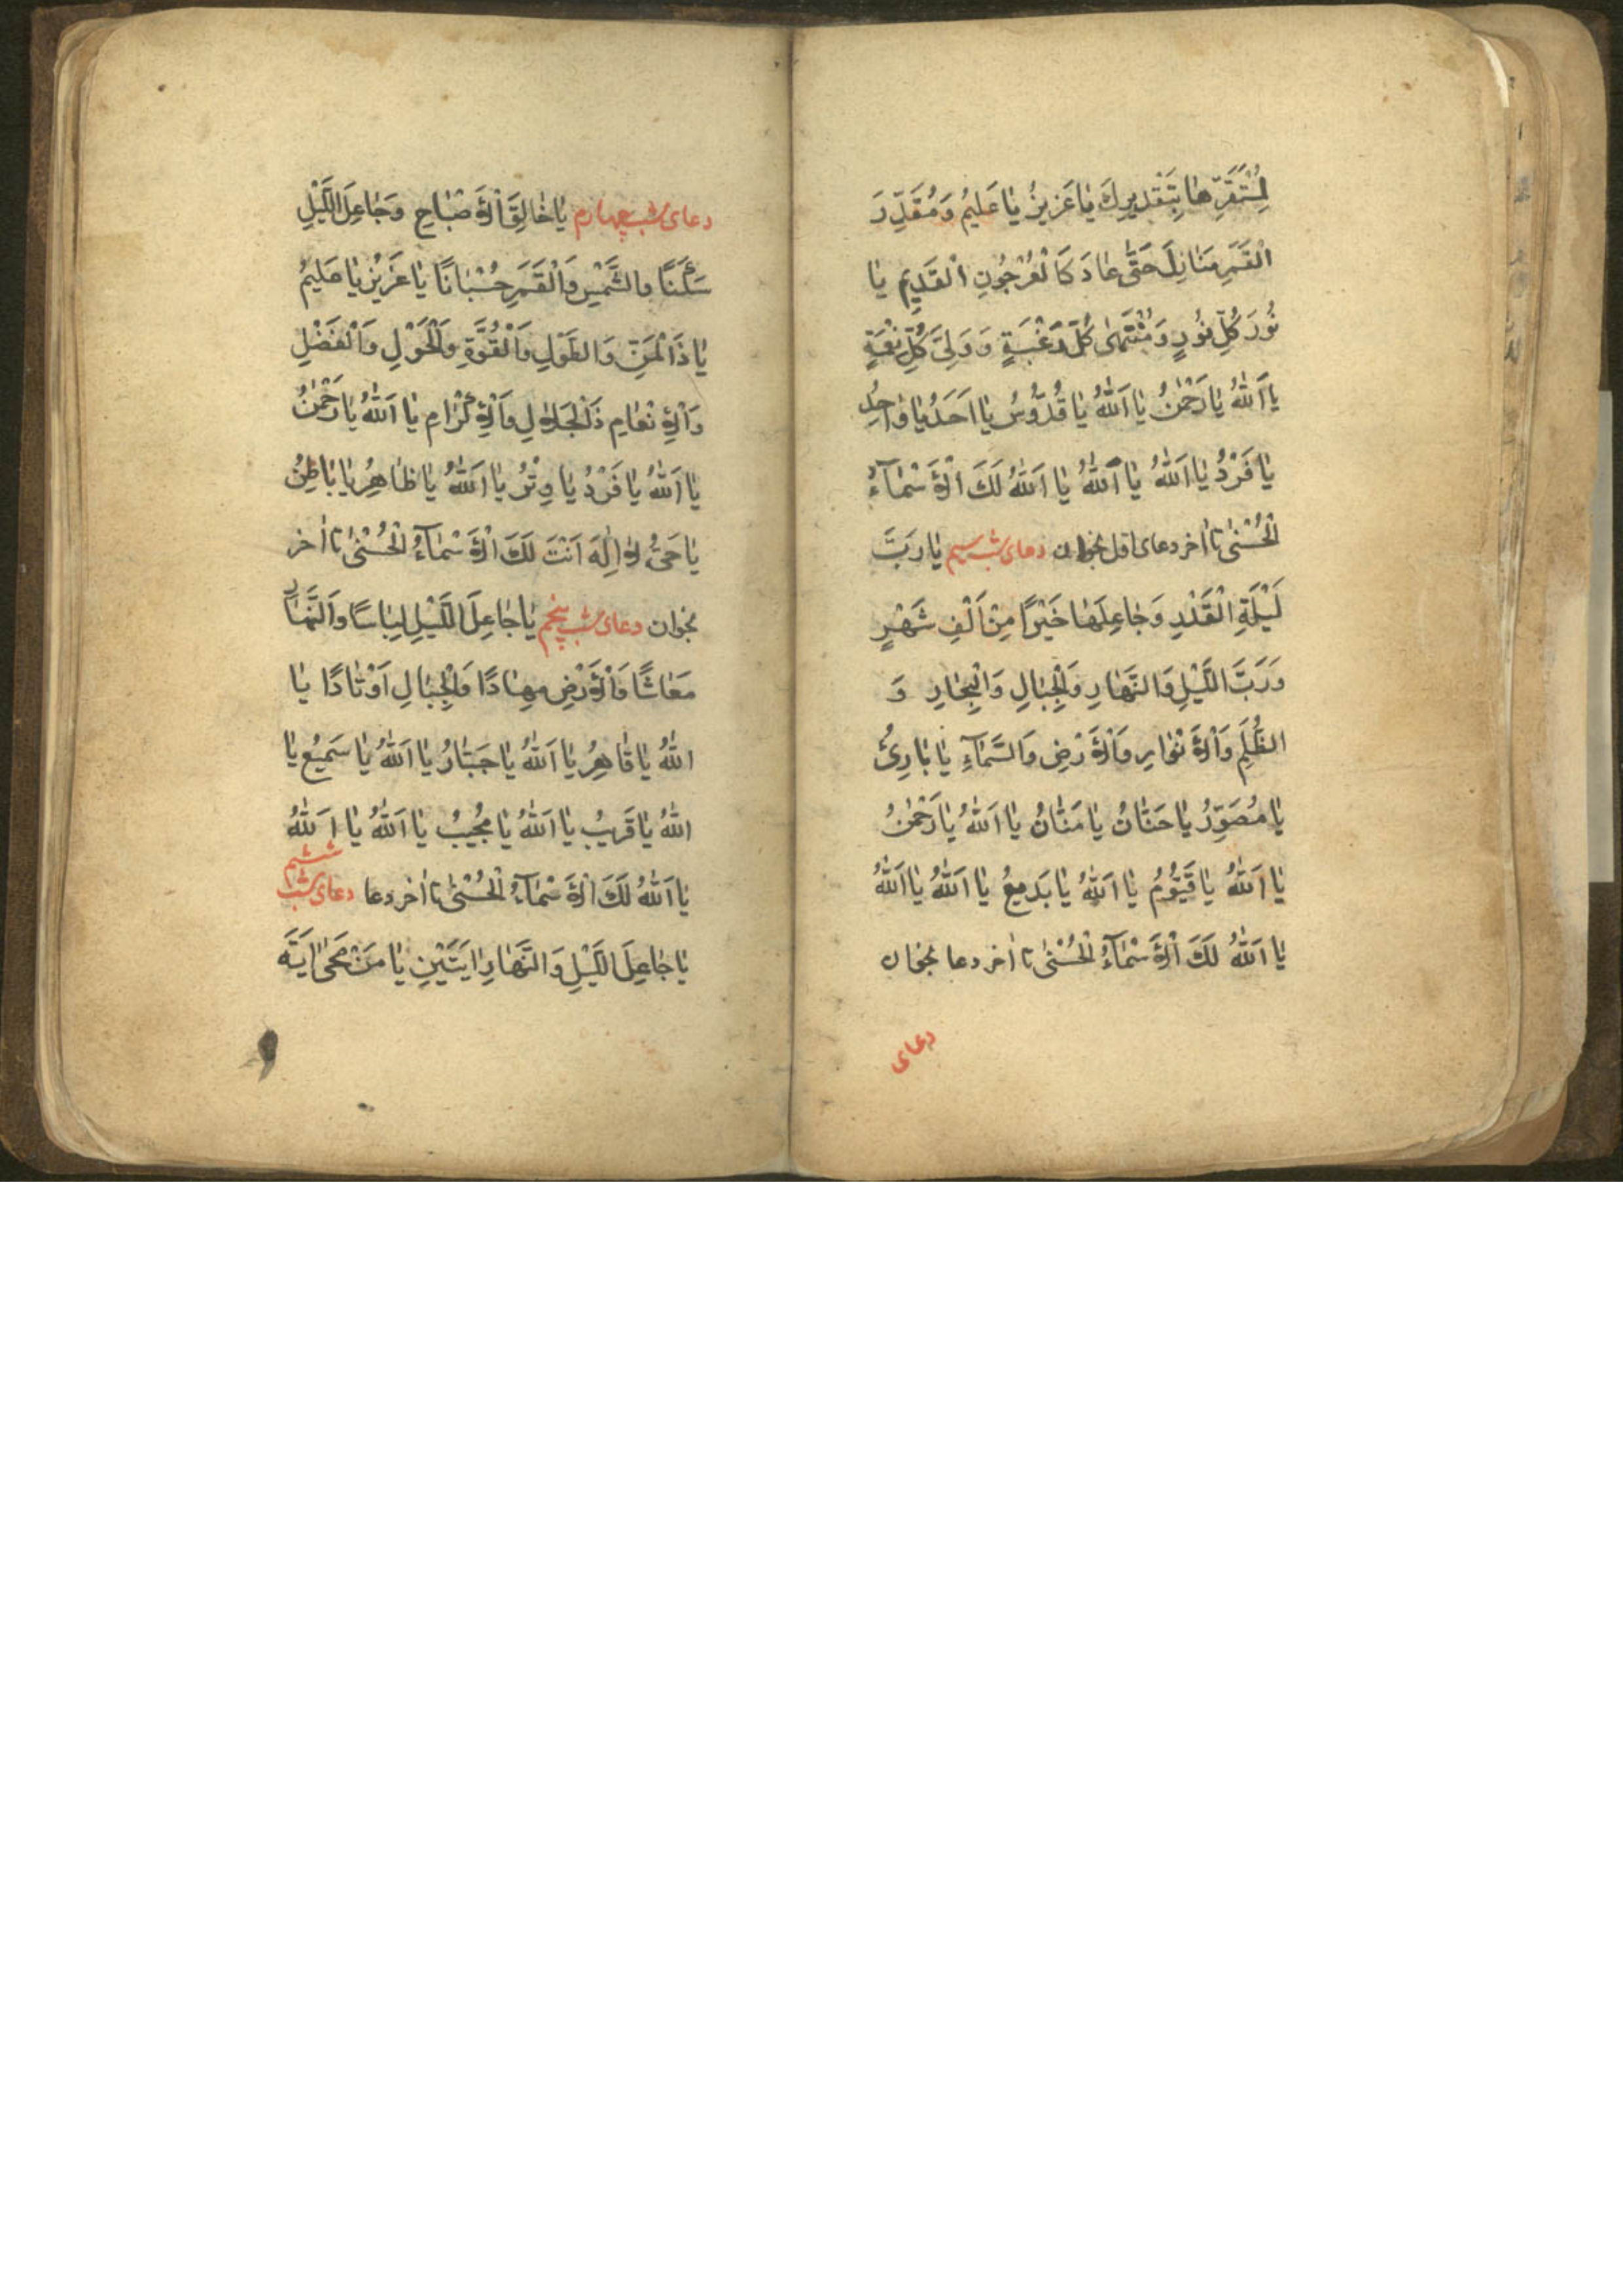 لِمُسْتَقَرِّهٰا بِتَقْدِيرِكَ يٰا عَزِيزُ يٰا عَلِيمُ وَمُقَدِّرَ
الْقَمَرِ مَنٰازِلَ حَتّٰى عٰادَ كَالْعُرْجُونِ الْقَدِيمِ يٰا
نُورَ كُلِّ نُورٍ وَمُنْتَهٰى كُلِّ رَغْبَةٍ وَ وَلِيَّ كُلِّ نِعْمَةٍ
يٰا اَللّٰهُ يٰا رَحْمٰنُ يٰا اَللّٰهُ يٰا قُدُّوسُ يٰا اَحَدُ يٰا وٰاحِدُ
يٰا فَرْدُ يٰا اَللّٰهُ يٰا اَللّٰهُ يٰا اَللّٰهُ لَكَ الْاَسْمٰآءُ
الْحُسْنٰى تا اخر دعای اول بخوان دعای شب سیم يٰا رَبَّ
لَيْلَةِ الْقَدْرِ وَجٰاعِلَهٰا خَيْرًا مِنْ اَلْفِ شَهْرٍ
وَرَبَّ اللَّيْلِ وَالنَّهٰارِ وَالْجِبٰالِ وَالْبِحٰارِ وَ
الظُّلَمِ وَالْاَنْوٰارِ وَالْاَرْضِ وَالسَّمٰآءِ يٰا بٰارِئُ
يٰا مُصَوِّرُ يٰا حَنّٰانُ يٰا مَنّٰانُ يٰا اَللّٰهُ يٰا رَحْمٰنُ
يٰا اَللّٰهُ يٰا قَيُّومُ يٰا اَللّٰهُ يٰا بَدِيعُ يٰا اَللّٰهُ يٰا اَللّٰهُ
يٰا اَللّٰهُ لَكَ الْاَسْمٰآءُ الْحُسْنٰى تا اخر دعا بخوان
دعای
دعای شب چهارم يٰا خٰالِقَ الْاَصْبٰاحِ وَجٰاعِلَ اللَّيْلِ
سَكَنًا والشَّمْسِ وَالْقَمَرِ حُسْبٰانًا يٰا عَزِيزُ يٰا عَلِيمُ
يٰا ذَا الْمَنِّ وَالطَّوْلِ وَالْقُوَّةِ وَالْحَوْلِ وَالْفَضْلِ
وَالْاِنْعٰامِ ذَالْجَلٰالِ وَالْاِكْرٰامِ يٰا اَللّٰهُ يٰا رَحْمٰنُ
يٰا اَللّٰهُ يٰا فَرْدُ يٰا وِتْرُ يٰا اَللّٰهُ يٰا ظٰاهِرُ يٰا بٰاطِنُ
يٰا حَىُّ لٰا اِلٰهَ اَنْتَ لَكَ الْاَسْمٰآءُ الْحُسْنٰى تا اخر
بخوان دعای شب پنجم يٰا جٰاعِلَ اللَّيْلِ لِبٰاسًا وَالنَّهٰارِ
مَعٰاشًا وَالْاَرْضِ مِهٰادًا وَالْجِبٰالِ اَوْتٰادًا يٰا
اللّٰهُ يٰا قٰاهِرُ يٰا اَللّٰهُ يٰا جَبّٰارُ يٰا اَللّٰهُ يٰا سَمِيعُ يٰا
اللّٰهُ يٰا قَرِيبُ يٰا اَللّٰهُ يٰا مُجِيبُ يٰا اَللّٰهُ يٰا اَللّٰهُ
يٰا اَللّٰهُ لَكَ الْاَسْمٰآءُ الْحُسْنٰى تا اخر دعا دعای شب ششم
يٰا جٰاعِلَ اللَّيْلِ وَالنَّهٰارِ اٰيَتَيْنِ يٰا مَنْ مَحٰى اٰيَةَ